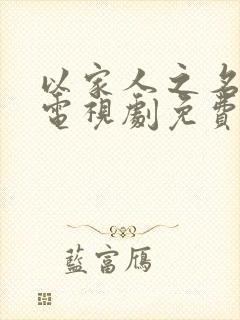 以家人之名
電視劇免費
藍富鴈